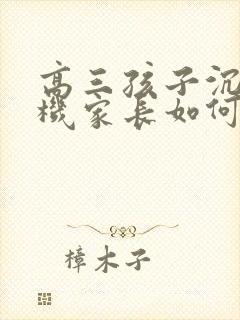 高三孩子沉
機家長如何
樟木子